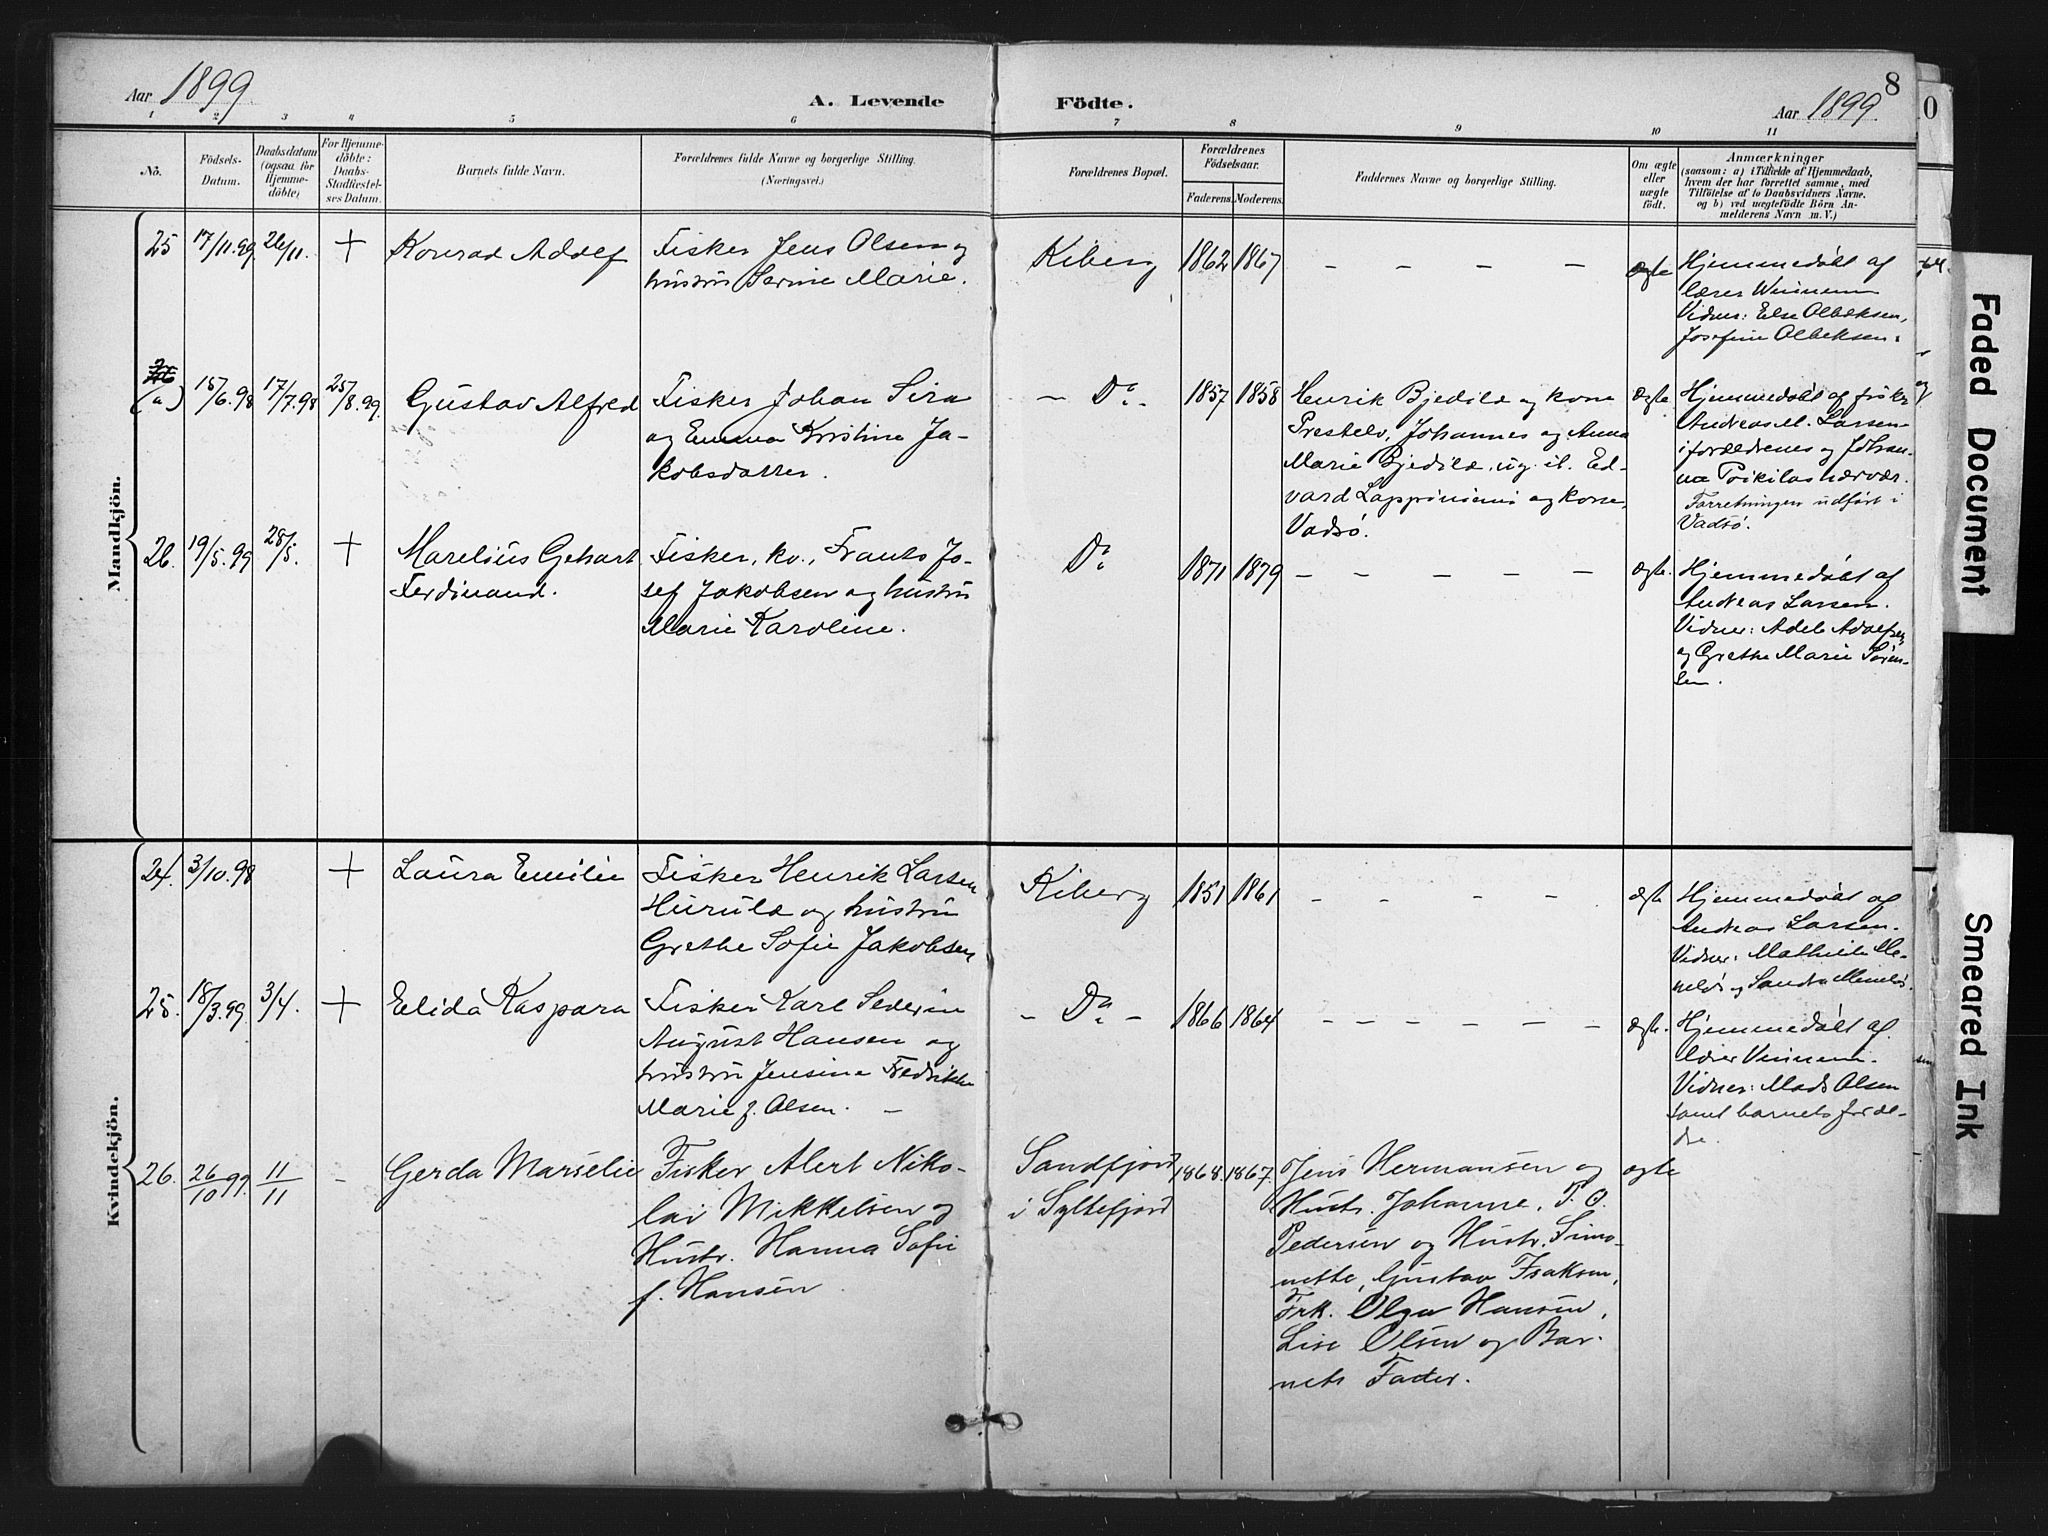 8
Aar 1899. A. Levende Födte. Aar 1899.
1 2 3 4 5 6 7 8 9 10 11
No.
Födsels-
Datum.
Daabsdatum
(ogsaa for
Hjemme-
döbte)
For Hjemme-
döbte:
Daabs-
Stadfæstel-
ses Datum.
Barnets fulde Navn.
Forældrenes fulde Navne og borgerlige Stilling.
(Næringsvei.)
Forældrenes Bopæl.
Forældrenes
Födselsaar.
Faderens. Moderens.
Faddernes Navne og borgerlige Stilling.
Om ægte
eller
uægte
födt.
Anmærkninger
(saasom: a) i Tilfælde af Hjemmedaab,
hvem der har forrettet samme, med
Tilföielse af to Daabsvidners Navne.
og b) ved uægtefödte Börn An-
melderens Navn m. V.)
Mandkjön.
25 17/11.99 26/11. + Konrad Adolf
Fisker Jens Olsen og
hustru Serine Marie.
Kiberg 1862 1867 – – – – ægte
Hjemmedøbt af
lærer Winnem
Vidner: Else Olbeksen,
Josefine Olbeksen.
(a) 15/6.98 17/7.98 25/8.99. Gustav Alfred
Fisker Johan Sira
og Emma Kristine Ja-
kobsdatter.
– Do. – 1857 1858
Henrik Bjedilæ og kone
Prestelv, Johannes og Anna
Marie Bjedilæ, ug. it. Ed-
vard Lappiniemi og kone,
Vadsø.
ægte
Hjemmedøbt af fisker
Andreas M. Larsen
i forældrenes og Johan-
na Poikilas nærvær.
Forretningen udført i
Vadsø.
26. 19/5.99 28/5. + Marelius Gehart
Ferdinand.
Fisker, kv., Frants Jo-
sef Jakobsen og hustru
Marie Karoline.
Do. 1871 1879 – – – – – ægte.
Hjemmedøbt af
Andreas Larsen.
Vidner: Adele Adolfsen
og Grethe Marie Søren-
sen.
Kvindekjön.
24. 3/10.98 + Laura Emilie
Fisker Henrik Larsen
Hurulæ og hustru
Grethe Sofie Jakobsen
Kiberg 1851 1861 – – – – ægte
Hjemmedøbt af
Andreas Larsen.
Vidner: Mathilde
25. 18/3.99. 3/4. + Elida Kaspara
Fisker Karl Severin
August Hansen og
hustru Jensine Fredrikke
Marie f. Olsen. –
– Do. – 1866 1864 – – – – – ægte.
Hjemmedøbt af
lærer Vinnem.
Vidner: Mads Olsen
samt barnets foræl-
dre.
26. 26/10 99. 11/11 – Gerda Marselie
Fisker Alert Niko-
lai Mikkelsen og
Hustr. Hanna Sofie
f. Hansen
Sandfjord
i Syltefjord
1868. 1867.
Jens Hermansen og
Hustr. Johanne, P. O.
Pedersen og Hustr. Simo-
nette, Gustav Isaksen,
Frk. Olga Hansen,
Lise Olsen og Bar-
nets Fader.
ægte
Faded Document
Smeared Ink